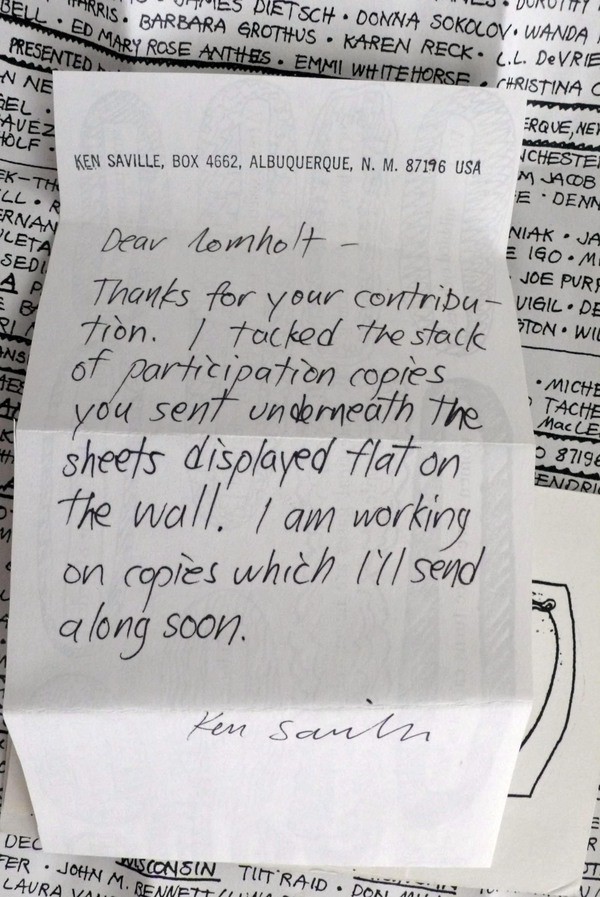 HARRIS • JAMES DIETSCH • DONNA SOKOLOV • WANDA
BELL • ED MARY ROSE ANTHES • BARBARA GROTHUS • KAREN RECK • L.L. DeVRIE
PRESENTED
EMMI WHITEHORSE • CHRISTINA C
KEN SAVILLE, BOX 4662, ALBUQUERQUE, N. M. 87196 USA
Dear Lomholt –
Thanks for your contribu–
tion. I tacked the stack
of participation copies
you sent underneath the
sheets displayed flat on
the wall. I am working
on copies which I'll send
along soon.
Ken Saville
ERQUE, NEW
NCHESTER
M JACOB
E • DENN
NIAK • JA
E IGO • MI
JOE PURP
VIGIL • DE
STON • WIL
• MICHE
TACHE
MacLE
O 87196
ENDRIC
WISCONSIN TIIT RAID • DON
FER • JOHN M. BENNETT
LAURA VAN